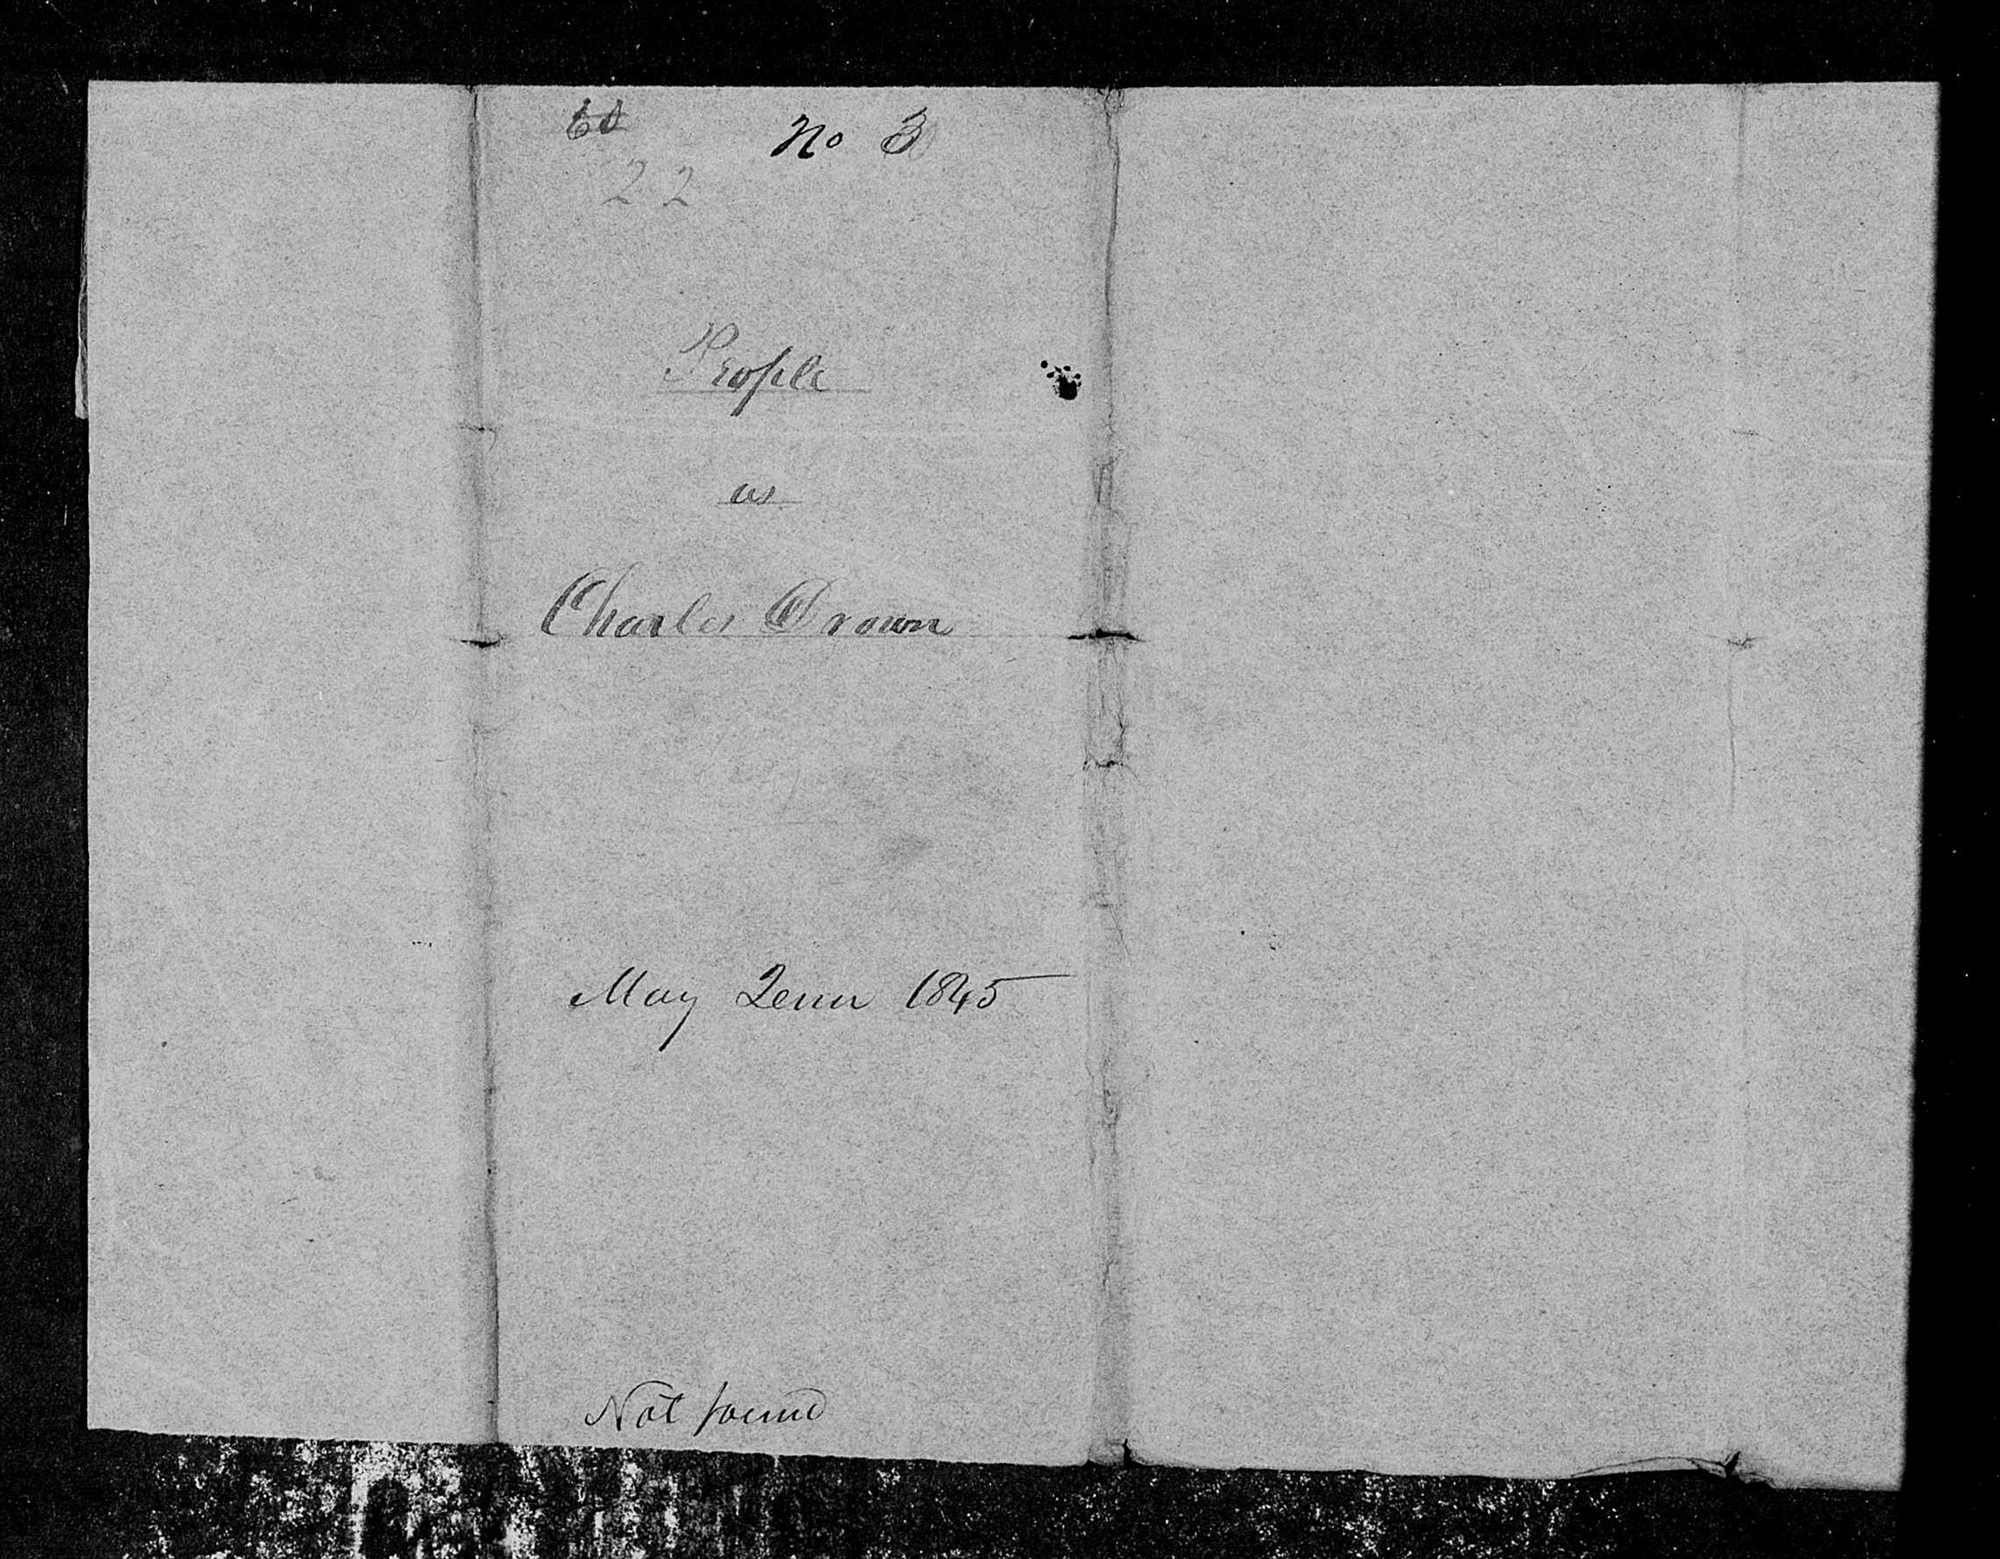 60 No 3
22
People
vs
Charles Drown
May Term 1845
Not found